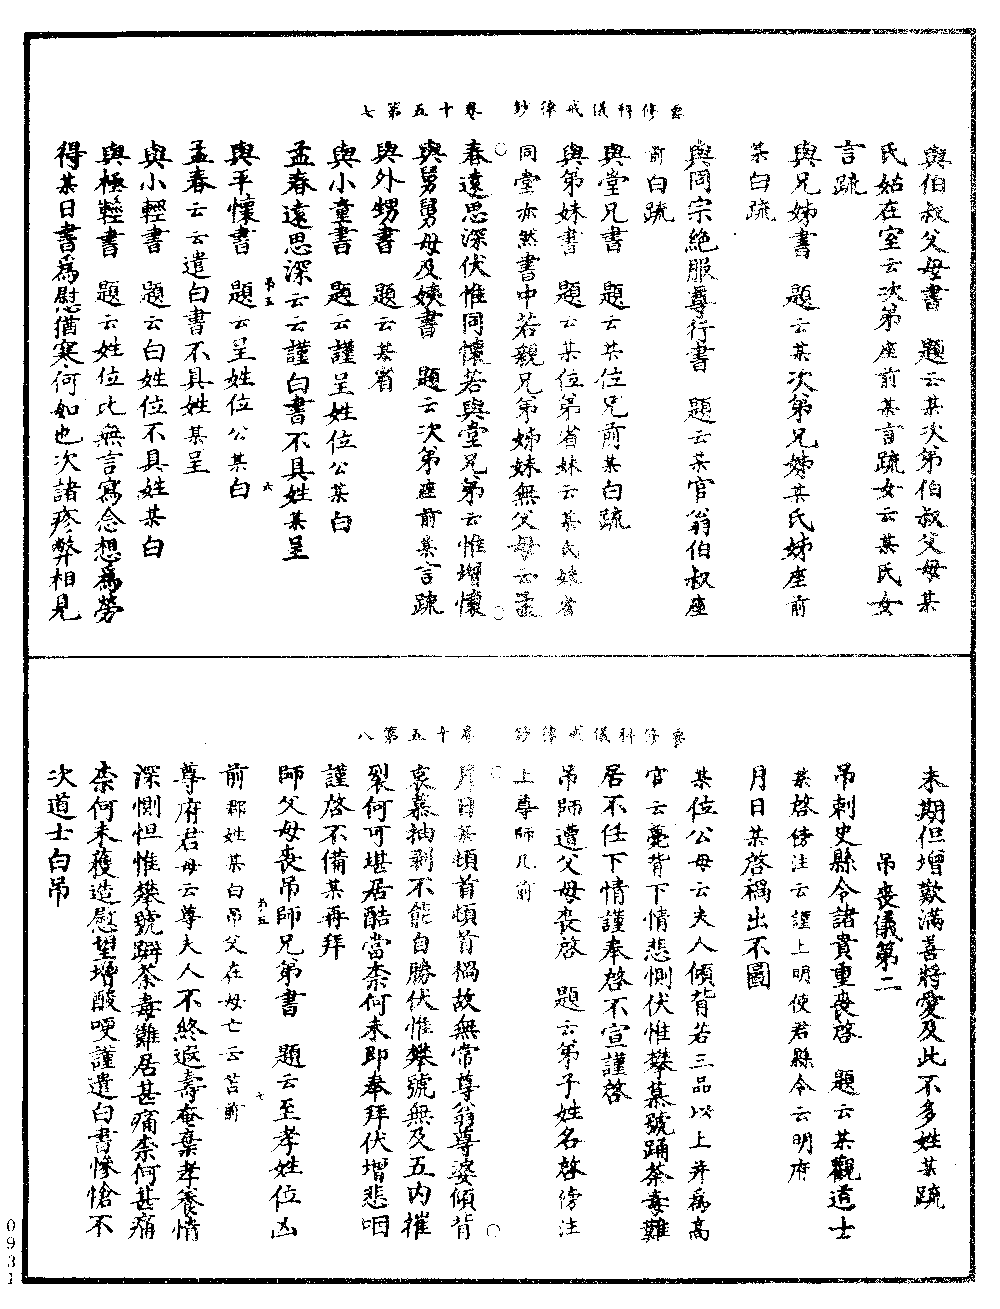 要修科儀戒律鈔　卷十五第七
與伯叔父母書　題云某次第伯叔父母某
氏姑在室云次第座前某言疏女云某氏女
言疏
與兄姊書　題云某次第兄姊某氏姊座前
某白疏
與同宗絶服尊行書　題云某官翁伯叔座
前白疏
與堂兄書　題云某位兄前某白疏
與弟妹書　題云某位弟省妹云某氏妹省
同堂亦然書中若親兄弟姊妹無父母云孟
春遠思深伏惟同懷若與堂兄弟云惟增懷
與舅舅母及姨書　題云次第座前某言疎
與外甥書　題云某省
與小童書　題云謹呈姓位公某白
孟春遠思深云云謹白書不具姓某呈
與平懷書　題云呈姓位公某白
孟春云云遣白書不具姓某呈
與小輕書　題云白姓位不具姓某白
與極輕書　題云姓位此無言寫念想爲勞
得某日書爲慰猶寒何如也次諸疹弊相見
弟五　六
要修科儀戒律鈔　卷十五第八
未期但增歎滿善將愛及此不多姓某疏
弔喪儀第二
弔刺史縣令諸貴重喪啓　題云某觀道士
某啓傍注云謹上明使君縣令云明府
月日某啓禍出不圖
某位公母云夫人傾背若三品以上幷爲高
官云薨背下情悲惻伏惟攀慕號踊荼毒難
居不任下情謹奉啓不宣謹啓
弔師遭父母喪啓　題云弟子姓名啓傍注
上尊師几前
月日某頓首頓首禍故無常尊翁尊婆傾背
哀慕抽剥不能自勝伏惟攀號無及五内摧
裂何可堪居酷當柰何未卽奉拜伏增悲咽
謹啓不備某再拜
師父母喪弔師兄弟書　題云至孝姓位凶
前郡姓某白弔父在母亡云苫前
尊府君母云尊夫人不終遐壽奄棄孝養情
深惻怛惟攀號擗荼毒難居甚痛柰何甚痛
柰何未獲造慰望增酸哽謹遣白書慘愴不
次道士白弔
弟五　七
0931